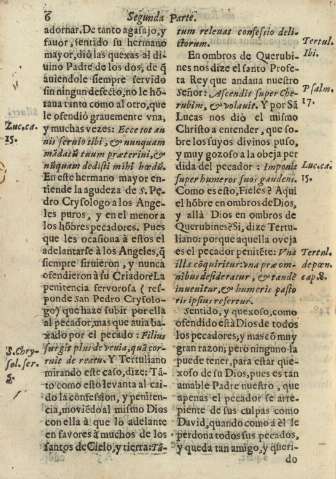 6 Segunda Parte.
adornar. De tanto agasajo, y
fauor, sentido su hermano
mayor, dió las quexas al di-
uino Padre de los dos, de q̃
auiendole siempre servido
sin ningun defecto, no le hõ-
raua tanto como al otro, que
le ofendió grauemente vna,
y muchas vezes: Ecce tot an
nis seruio tibi, & nunquam
mãdatũ tuum præteriui, &
nunquam dedisti mihi hœdũ.
En este hermano mayor en-
tiende la agudeza de S. Pe-
dro Crysologo a los Ange-
les puros, y en el menor a
los hõbres pecadores. Pues
que les ocasiona á estos el
adelantarse à los Angeles, q̃
siempre siruieron, y nunca
ofendieron à su Criador? La
penitencia fervorosa (res-
ponde san Pedro Crysolo-
go) que haze subir por ella
al pecador, mas que auia ba-
xado por el pecado: Filius
surgit plus de venia, quã cor-
ruit de reatu. Y Tertuliano
mirando este caso, dize: Tã-
to como esto levanta al cai-
do la confession, y peniten-
cia, moviẽdo al mismo Dios
con ella à que lo adelante
en favores à muchos de los
santos de Cielo, y tierra: Tã-
Luc. ca.
15.
S. Chry-
sol. ser.
tum relevat confessio deli-
ctorum.
En ombros de Querubi-
nes nos dize el santo Profe-
ta Rey que andaua nuestro
Señor: Ascendit super Che-
rubim, & volauit. Y por Sã
Lucas nos dió el mismo
Christo a entender, que so-
bre los suyos divinos puso,
y muy gozoso a la oveja per
dida del pecador: Imponit
super humeros suos gaudens.
Como es esto, Fieles? Aqui
el hõbre en ombros de Dios,
y allà Dios en ombros de
Querubines? Si, dize Tertu-
liano: porque aquella oveja
es el pecador penitẽte: Vna
illa requiritur: vna præ om-
nibus desideratur, & tandẽ
inuenitur, & humeris pasto
ris ipsius refertur.
Sentido, y quexoso, como
ofendido està Dios de todos
los pecadores, y mas cõ muy
gran razon; pero ninguno la
puede tener, para estar que-
xoso de su Dios, pues es tan
amable Padre nuestro, que
apenas el pecador se arre-
piente de sus culpas como
David, quando como à èl le
perdona todos sus pecados,
y queda tan amigo, y queri-
do
Tertul.
ibi.
Psalm.
17.
Luc. ca.
15.
Tertul.
de pœn.
cap. 8.